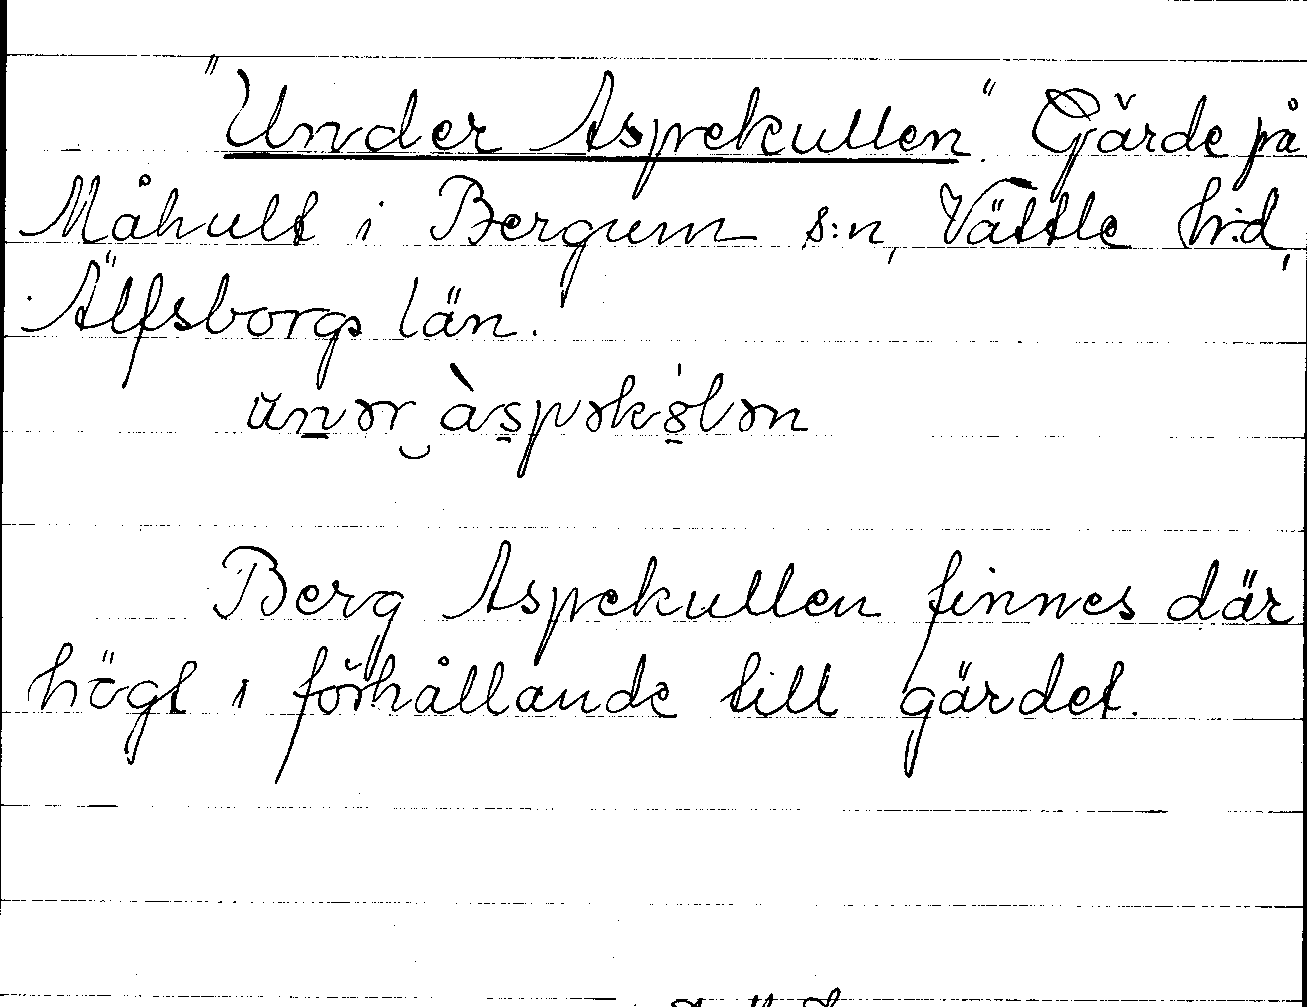 "Under Aspekullen". Gärde på
Måhult i Bergum s:n, Vättle h:d,
Älfsborgs län.
unər àspəkölən
Berg Aspekullen finnes där
högt i förhållande till gärdet.